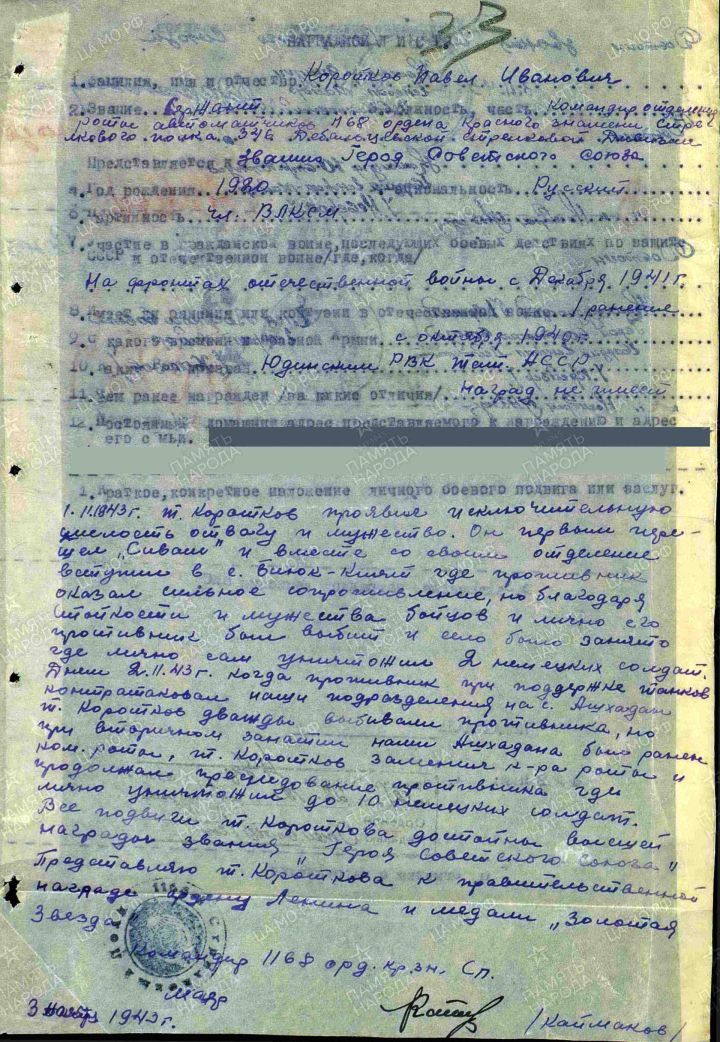 33
НАГРАДНОЙ ЛИСТ
1. Фамилия, имя и отчество Коротков Павел Иванович
2. Звание Сержант должность, часть Командир отделения
роты автоматчиков 1168 ордена Красного знамени Стре-
лкового полка 346 Дебальцевской стрелковой Дивизии
Представляется к званию Героя Советского Союза
4. Год рождения 1920 национальность Русский
6. Партийность чл. ВЛКСМ
7. Участие в гражданской войне, последующих боевых действиях по защите
СССР и отечественной войне /где, когда/
На фронтах отечественной войны с Декабря 1941 г.
8. Имеет ли ранения или контузии в отечественной войне 1 ранение
9. С какого времени в Красной Армии с октября 1940 г.
10. Каким РВК призван Юдинским РВК Тат. АССР
11. Чем ранее награжден /за какие отличия/ наград не имеет
12. Постоянный домашний адрес представляемого к награждению и адрес
его семьи.
1. Краткое, конкретное изложение личного боевого подвига или заслуг.
1.11.1943 г. т. Коротков проявил исключительную
смелость отвагу и мужество. Он первым пере-
шел „Сиваш" и вместе со своим отделение
вступил в с. Биюк-Кият где противник
оказал сильное сопротивление, но благодаря
стойкости и мужества бойцов и лично его
противник был выбит и село было занято
где лично сам уничтожил 2 немецких солдат.
Днем 2.11.43 г. когда противник при поддержке танков
контратаковал наши подразделения на с. Ашкадан
т. Коротков дважды выбивали противника, но
при вторичном занятии нами Ашкадана был ранен
ком. роты, т. Коротков заменил к-ра роты и
продолжал преследование противника где
лично уничтожил до 10 немецких солдат.
Все подвиги т. Короткова достойны высшей
награды звания „Героя Советского Союза"
Представляю т. Короткова к правительственной
награде ордену Ленина и медали „Золотая
Звезда
Командир 1168 орд. кр. зн. Сп.
майор
3 1943 г. /Кайманов/